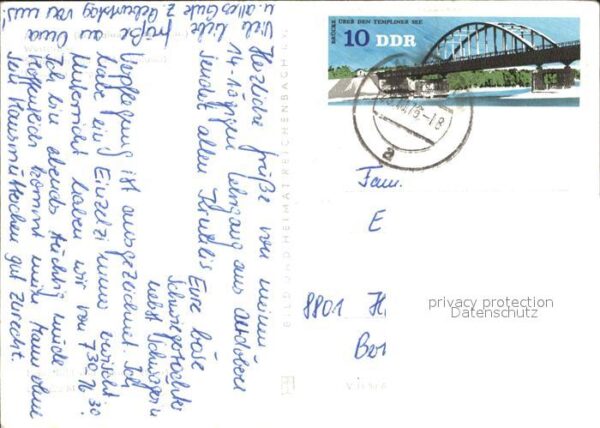 Herzliche Grüße von meinem
14-tägigen Lehrgang aus Altdöbern
sendet allen Krutkis
Eure böse
Schwiegertochter
nebst Schwägerin
Verpflegung ist ausgezeichnet. Ich
habe ein Einzelzimmer erwischt.
Unterricht haben wir von 7³⁰-16³⁰
Ich bin abends tüchtig müde.
Hoffentlich kommt mein Mann ohne
sein Hausmütterchen gut zurecht.
Viele liebe Grüße an Oma
u. alles Gute z. Geburtstag von uns!
BILD UND HEIMAT REICHENBACH I. V.
BRÜCKE ÜBER DEN TEMPLINER SEE
10 DDR
75-18
a
Fam.
E
8801 H.
privacy protection
Datenschutz